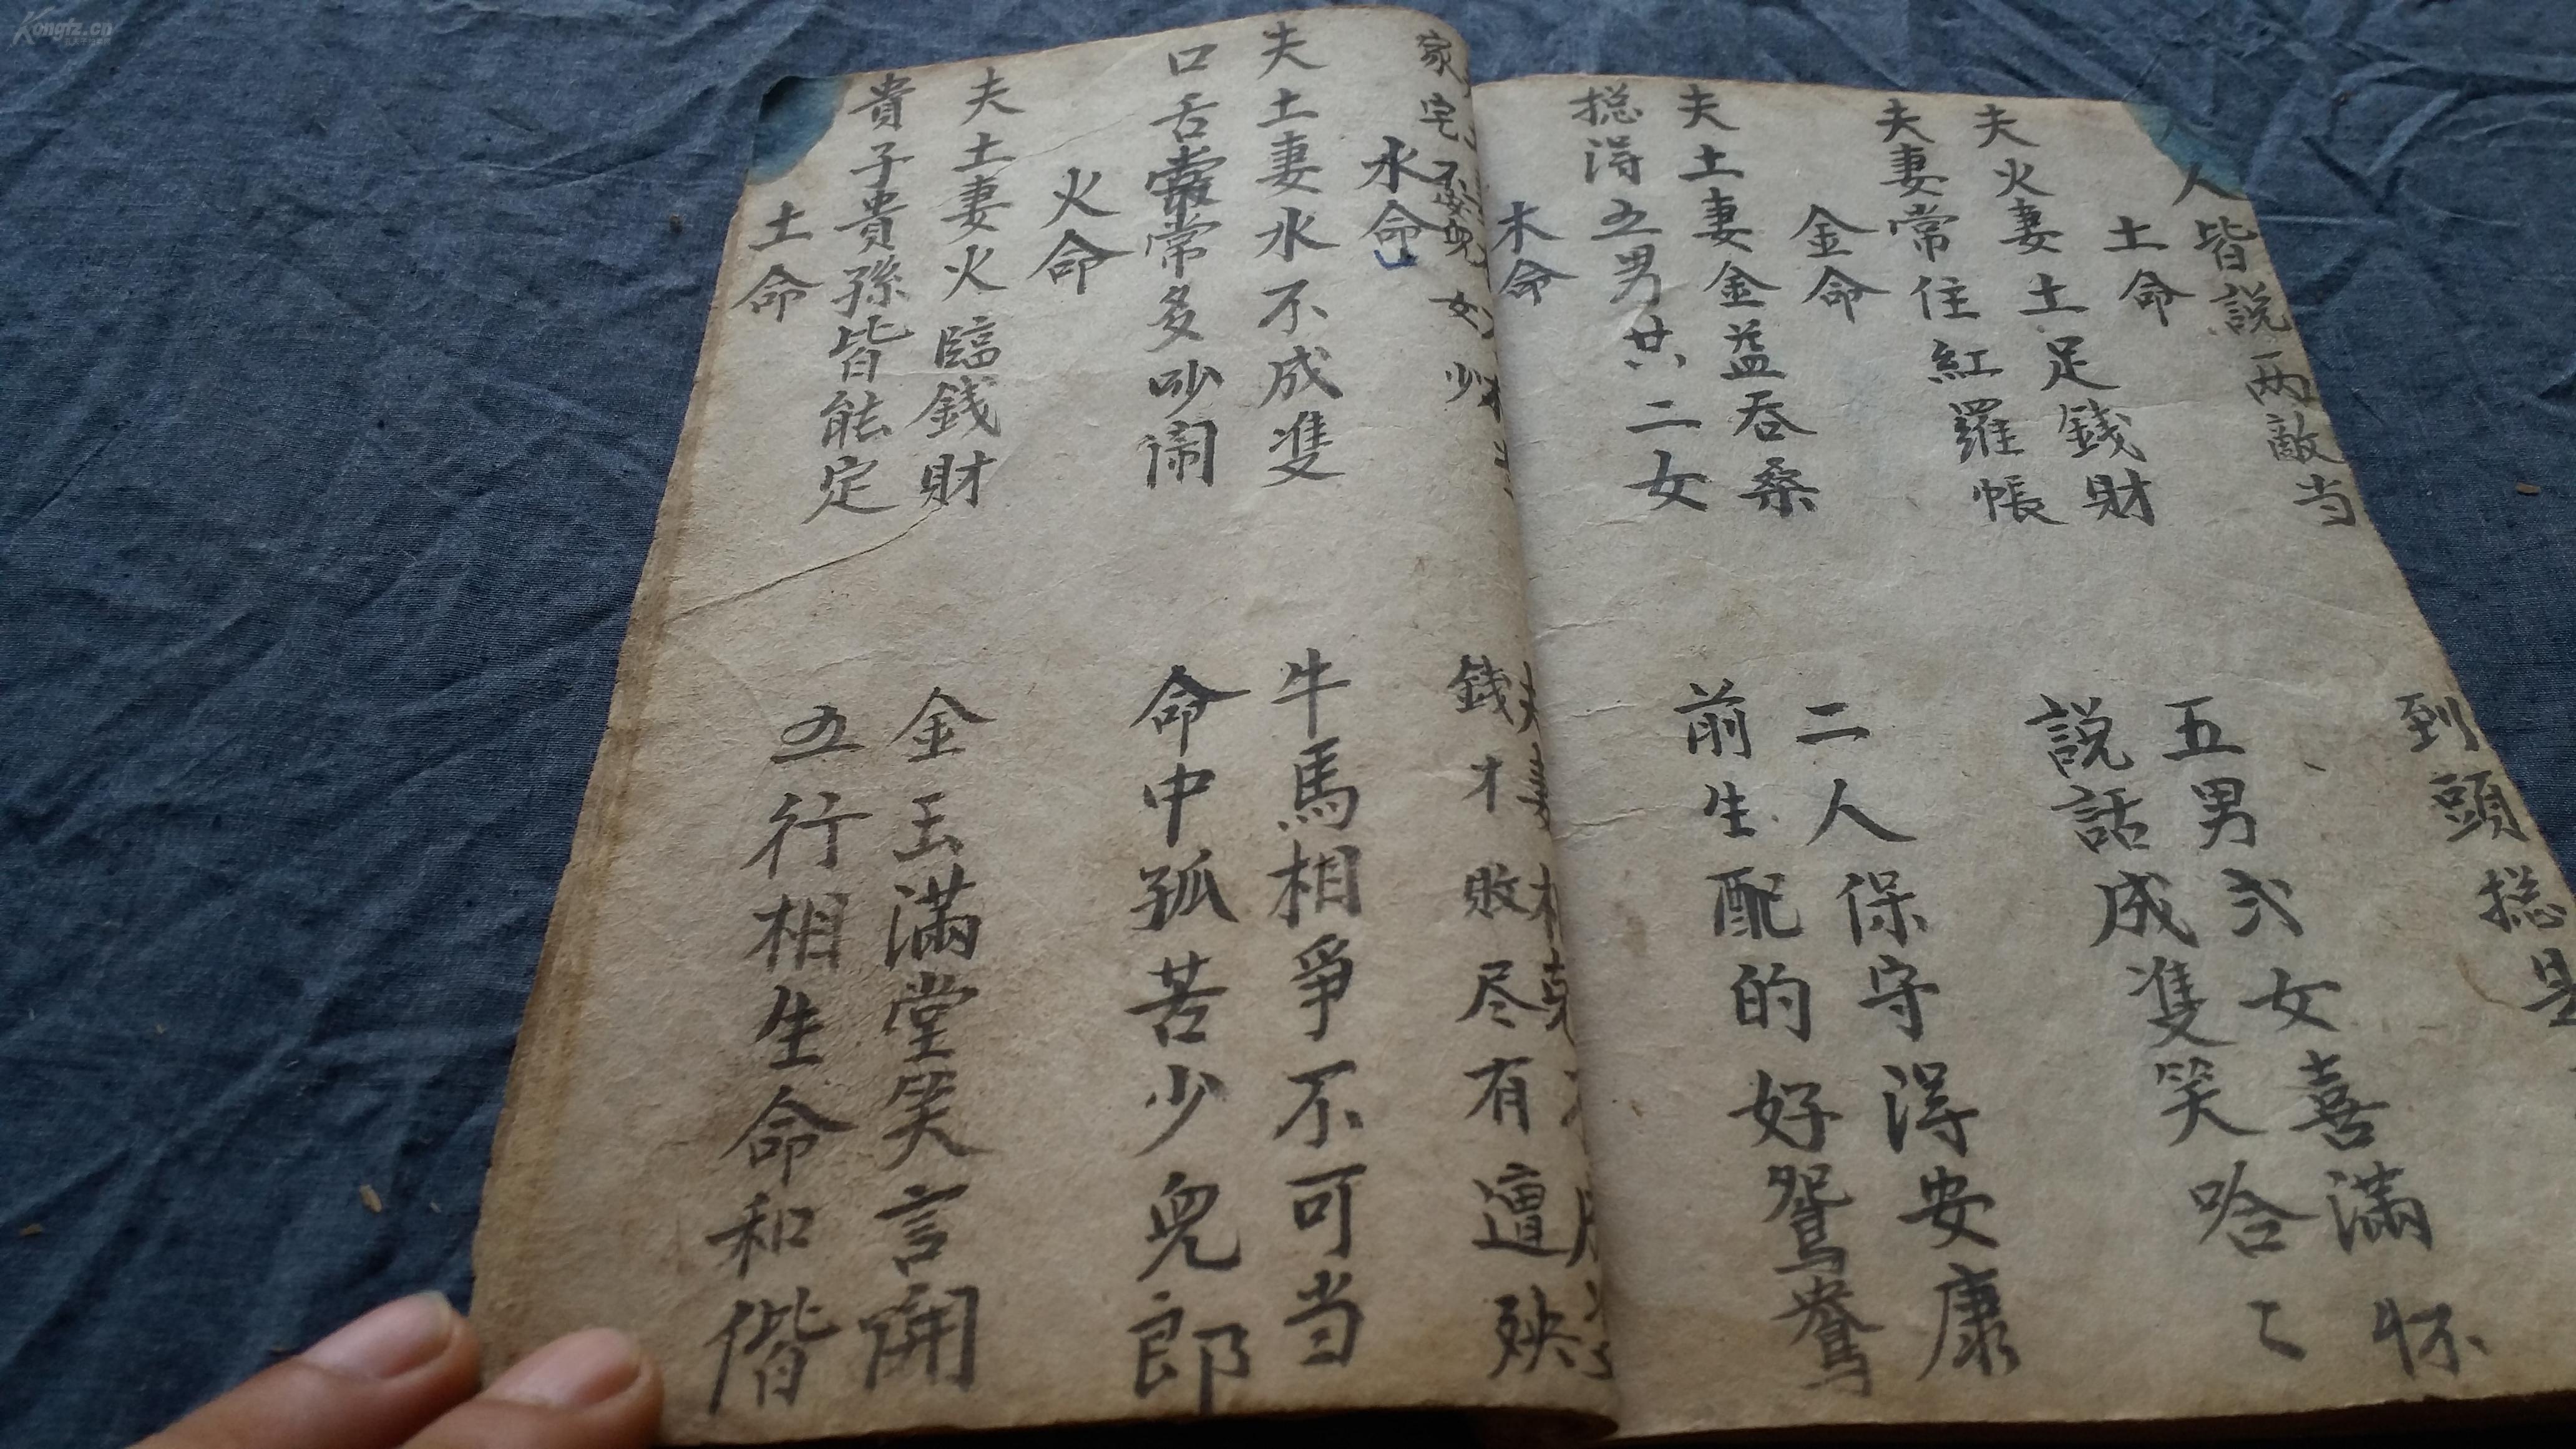 人皆説两敵当
到頭捴是
土命
夫火妻土足錢財
五男弍女喜滿怀
夫妻常住紅羅帳
説話成隻笑哈〻
金命
夫土妻金益吞桑
二人保守淂安康
捴淂五男共二女
前生配的好鴛鴦
木命
家宅
女少
錢才敗尽有遭殃
水命
夫土妻水不成隻
牛馬相爭不可当
口舌常多吵闹
命中孤苦少兒郎
火命
夫土妻火臨錢財
金玉滿堂笑言開
貴子貴孫皆能定
五行相生命和偕
土命
Kongfz.cn